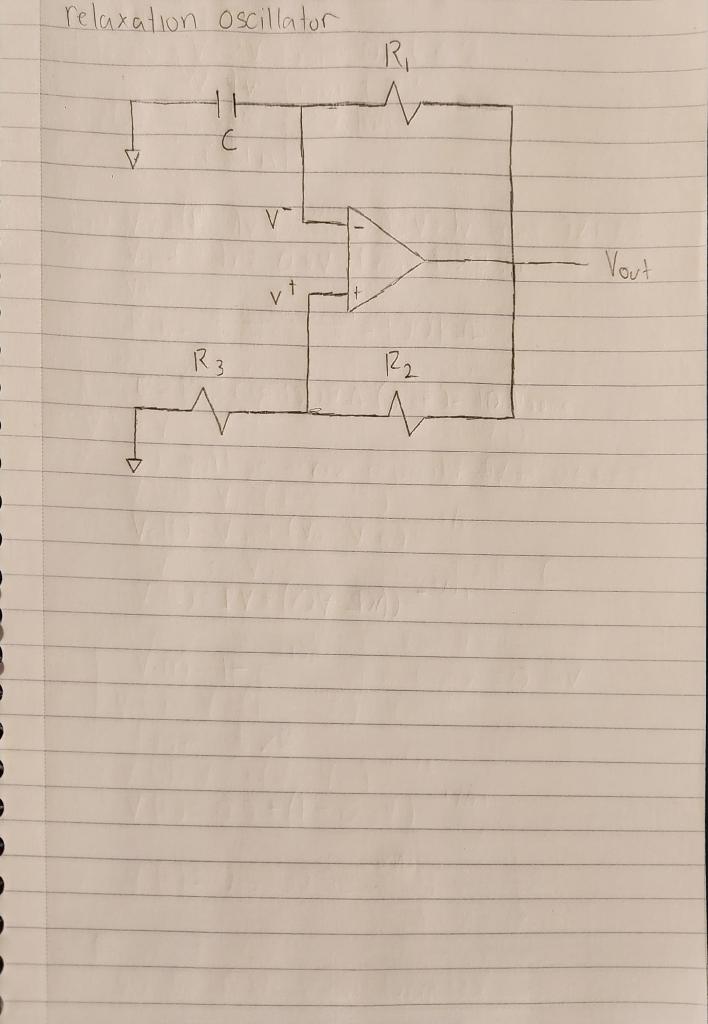 relaxation oscillator
R₁
C
V⁻
-
Vout
V⁺
+
R₃ R₂